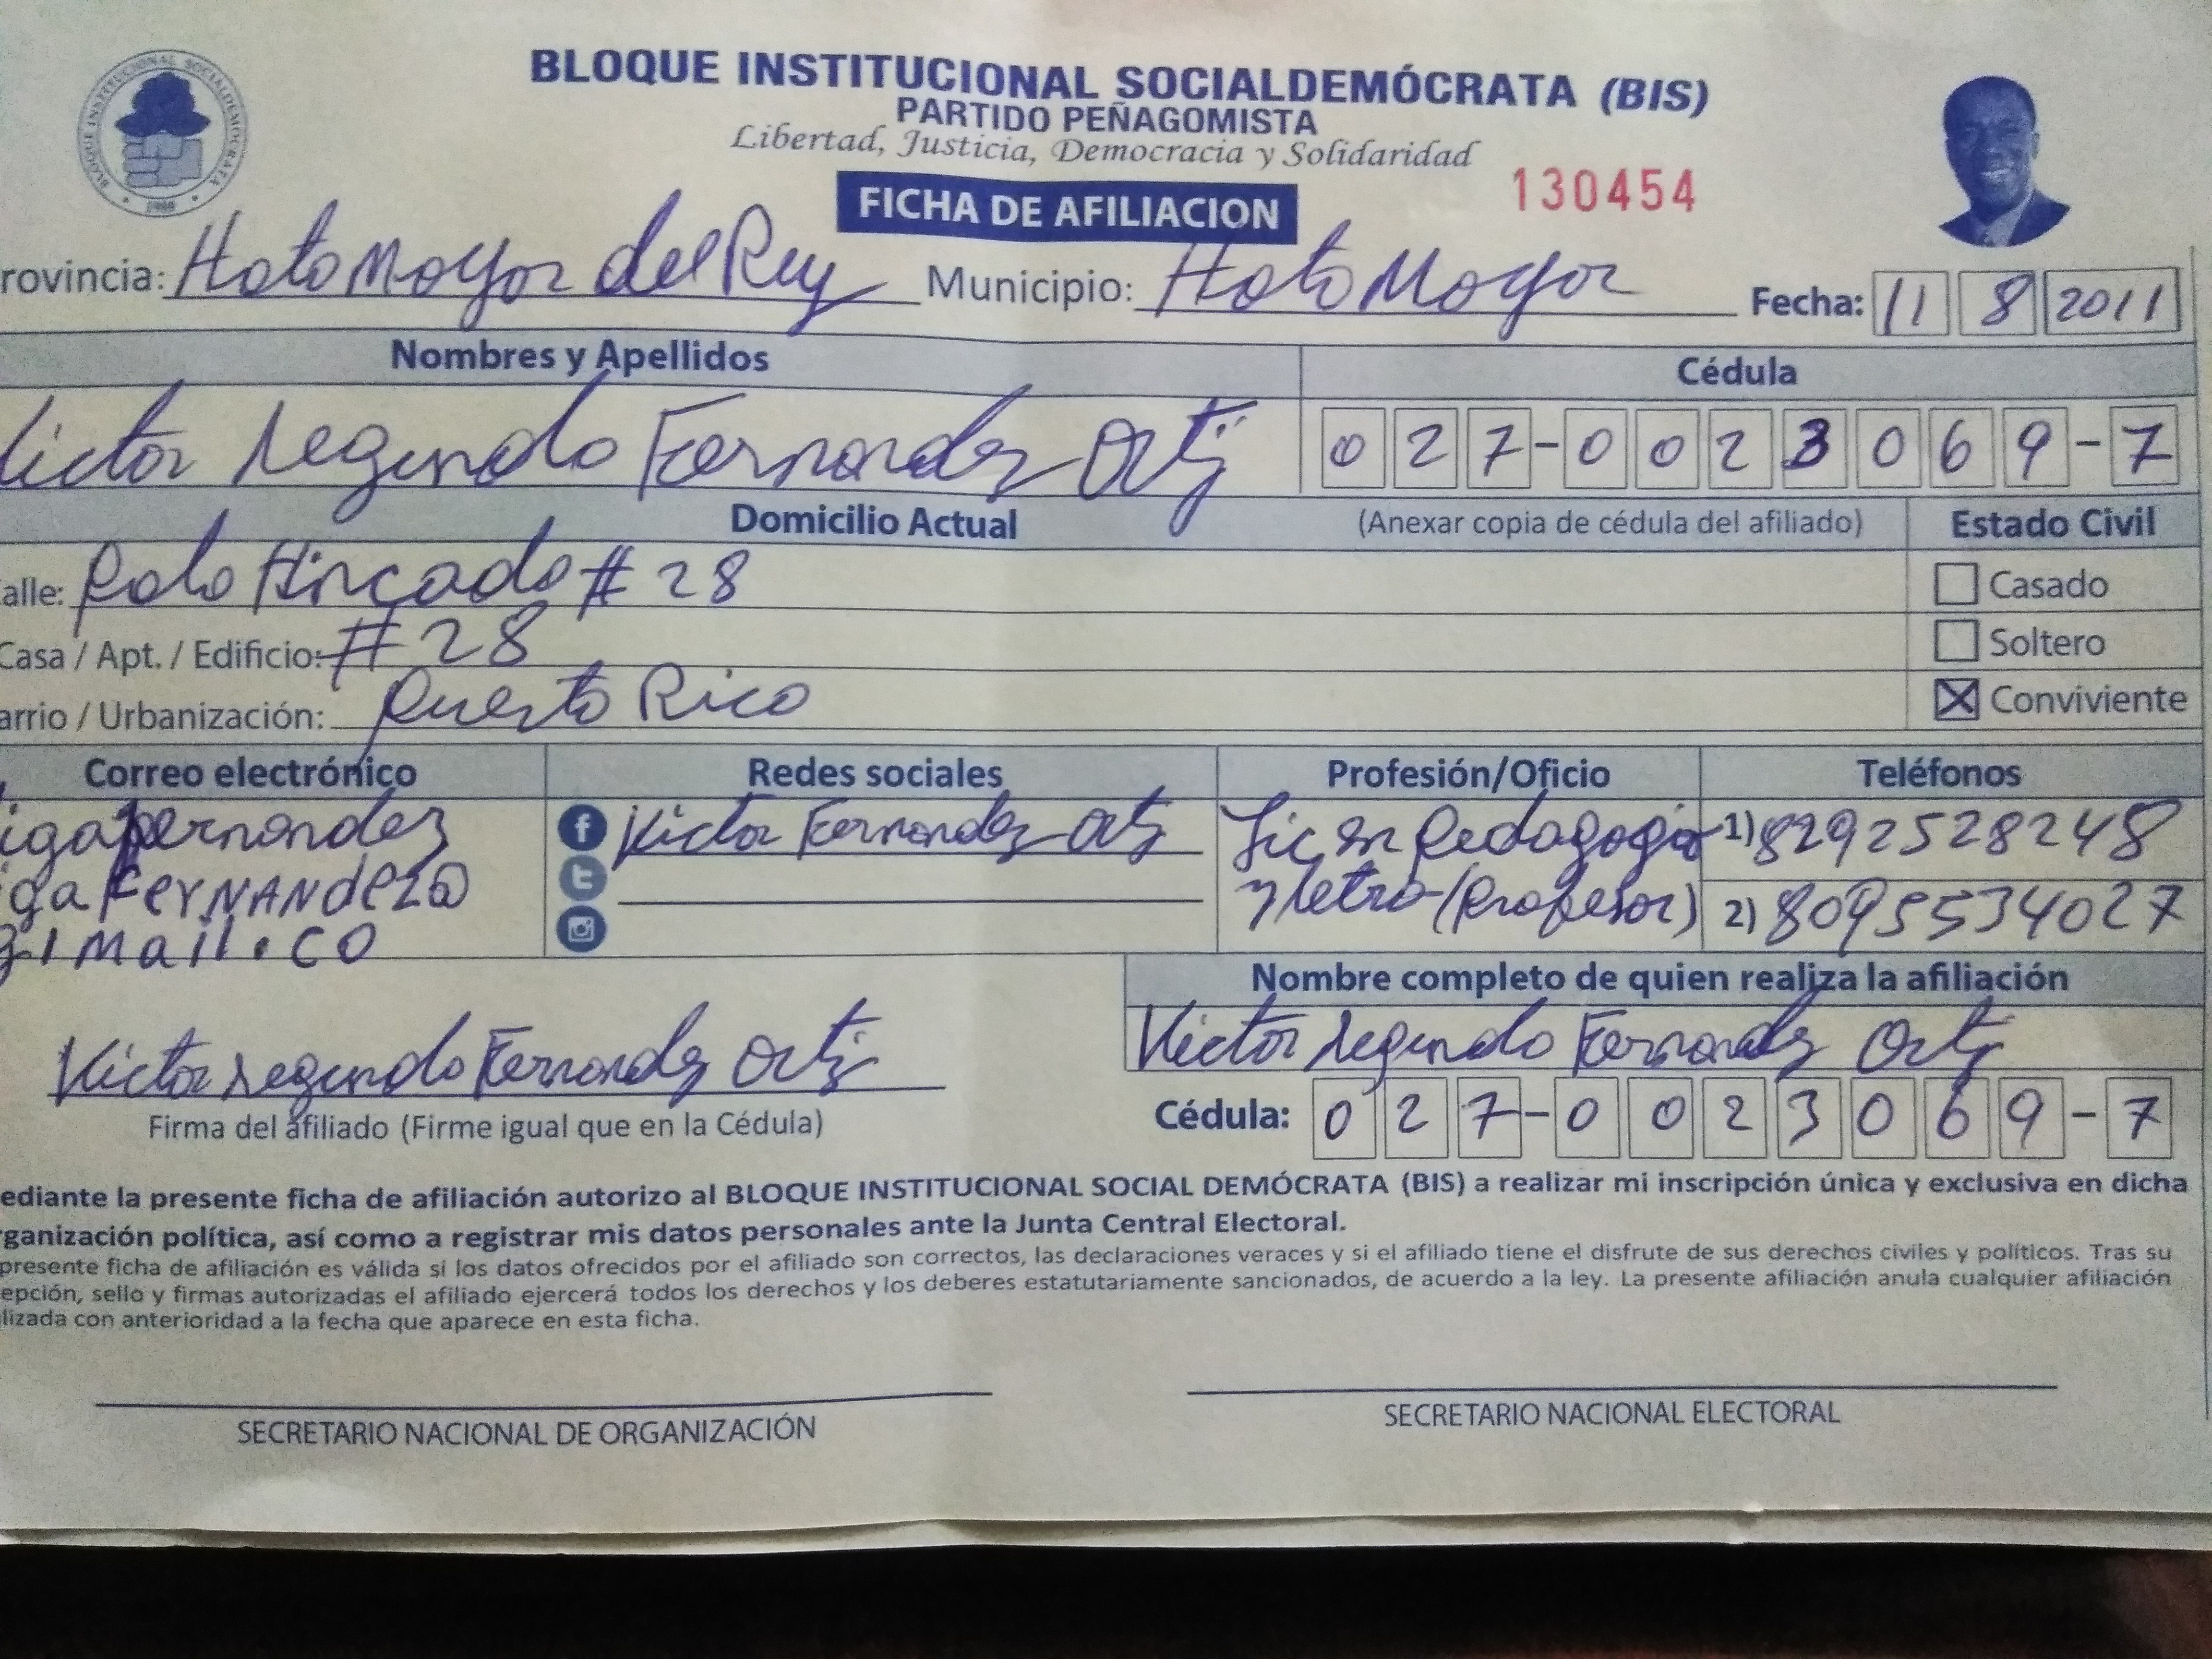 BLOQUE INSTITUCIONAL SOCIALDEMÓCRATA (BIS)
PARTIDO PEÑAGOMISTA
Libertad, Justicia, Democracia y Solidaridad
BLOQUE INSTITUCIONAL SOCIALDEMOCRATA
130454
FICHA DE AFILIACION
rovincia: Hato Mayor del Rey Municipio: Hato Mayor Fecha: 11 8 2011
Nombres y Apellidos Cédula
Victor Segundo Fernandez Ortiz 027-0023069-7
Domicilio Actual (Anexar copia de cédula del afiliado) Estado Civil
alle: Palo Hincado # 28 Casado
Casa / Apt. / Edificio: # 28 Soltero
arrio / Urbanización: Puerto Rico X Conviviente
Correo electrónico Redes sociales Profesión/Oficio Teléfonos
igafernandez Victor Fernandez Ortiz Lic en Pedagogia 1) 8292528248
gaFerNANdez@ y letra (Profesor) 2) 8095534027
gimail.co
Nombre completo de quien realiza la afiliación
Victor Segundo Fernandez Ortiz Victor Segundo Fernandez Ortiz
Firma del afiliado (Firme igual que en la Cédula) Cédula: 027-0023069-7
ediante la presente ficha de afiliación autorizo al BLOQUE INSTITUCIONAL SOCIAL DEMÓCRATA (BIS) a realizar mi inscripción única y exclusiva en dicha
ganización política, así como a registrar mis datos personales ante la Junta Central Electoral.
presente ficha de afiliación es válida si los datos ofrecidos por el afiliado son correctos, las declaraciones veraces y si el afiliado tiene el disfrute de sus derechos civiles y políticos. Tras su
epción, sello y firmas autorizadas el afiliado ejercerá todos los derechos y los deberes estatutariamente sancionados, de acuerdo a la ley. La presente afiliación anula cualquier afiliación
lizada con anterioridad a la fecha que aparece en esta ficha.
SECRETARIO NACIONAL DE ORGANIZACIÓN SECRETARIO NACIONAL ELECTORAL